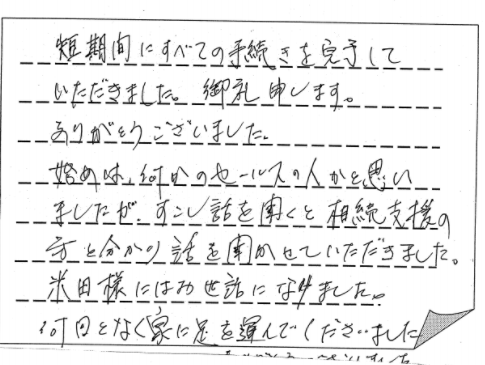 短期間にすべての手続きを完了して
いただきました。御礼申します。
ありがとうございました。
始めは、何かのセールスの人かと思い
ましたが、すこし話を聞くと相続支援の
方と分かり話を聞かせていただきました。
米田様にはお世話になりました。
何回となく家に足を運んでくださいました